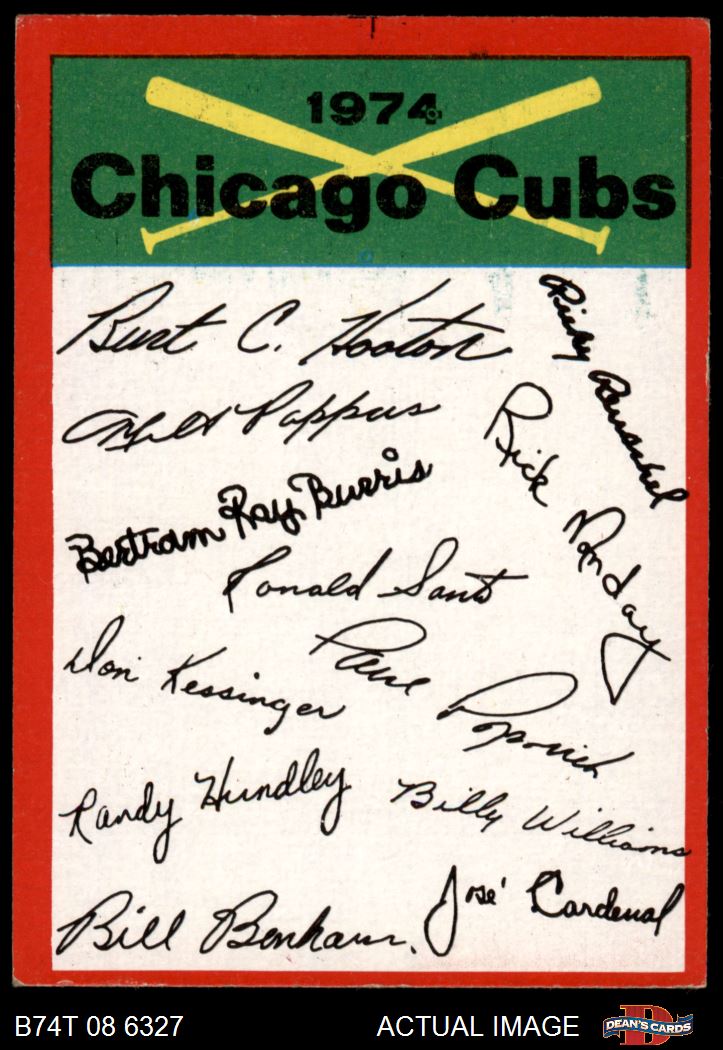 1974
Chicago Cubs
Burt C. Hooton
Ricky Reuschel
Milt Pappas
Rick Monday
Bertram Ray Burris
Ronald Santo
Don Kessinger
Paul Popovich
Randy Hundley
Billy Williams
José Cardenal
Bill Bonham.
B74T 08 6327
ACTUAL IMAGE
D
DEAN'S CARDS